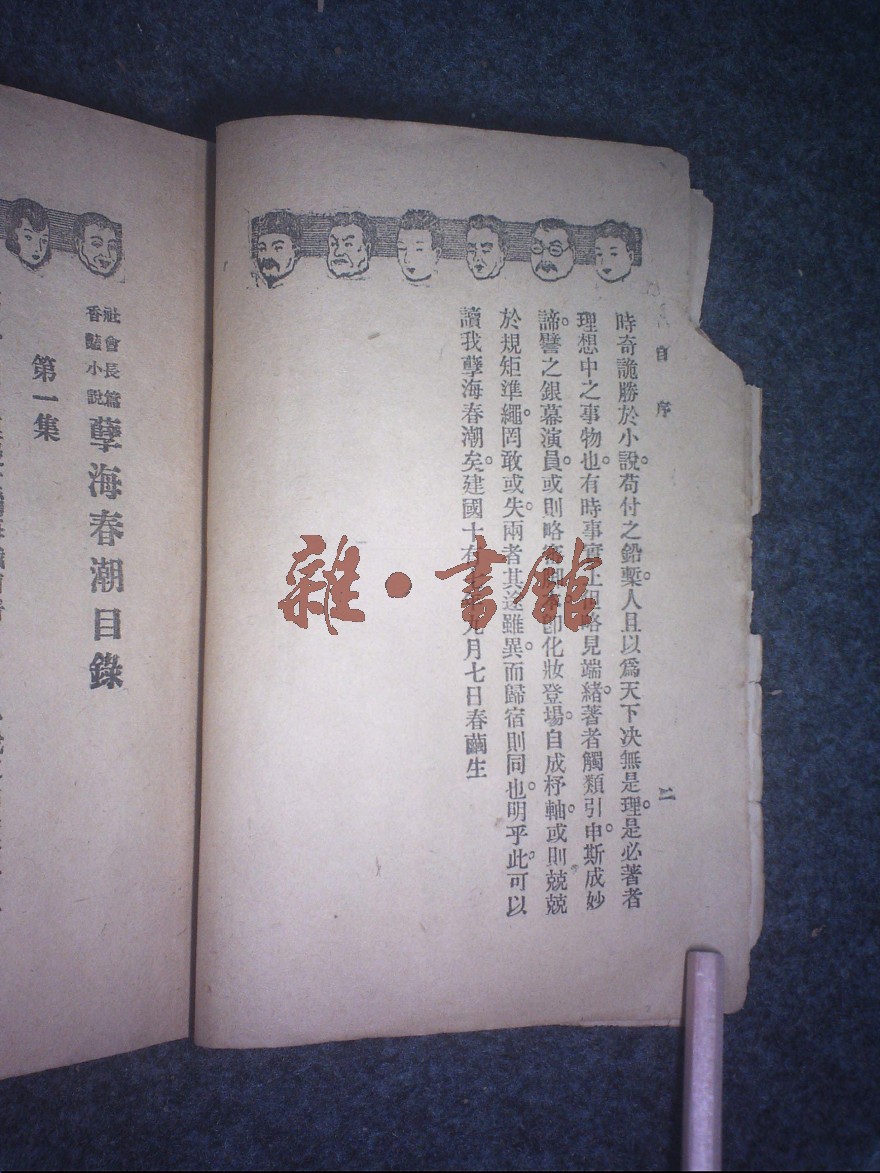 自序
二
時奇詭勝於小說。苟付之鉛槧。人且以爲天下决無是理。是必著者
理想中之事物也。有時事實上但略見端緒。著者觸類引申。斯成妙
諦。譬之銀幕演員。或則略化妝登場。自成杼軸。或則兢兢
於規矩準繩。罔敢或失。兩者其途雖異。而歸宿則同也。明乎此。可以
讀我孽海春潮矣。建國十有九月七日春繭生
社會長篇
香豔小說
孽海春潮目錄
第一集
雜·書館